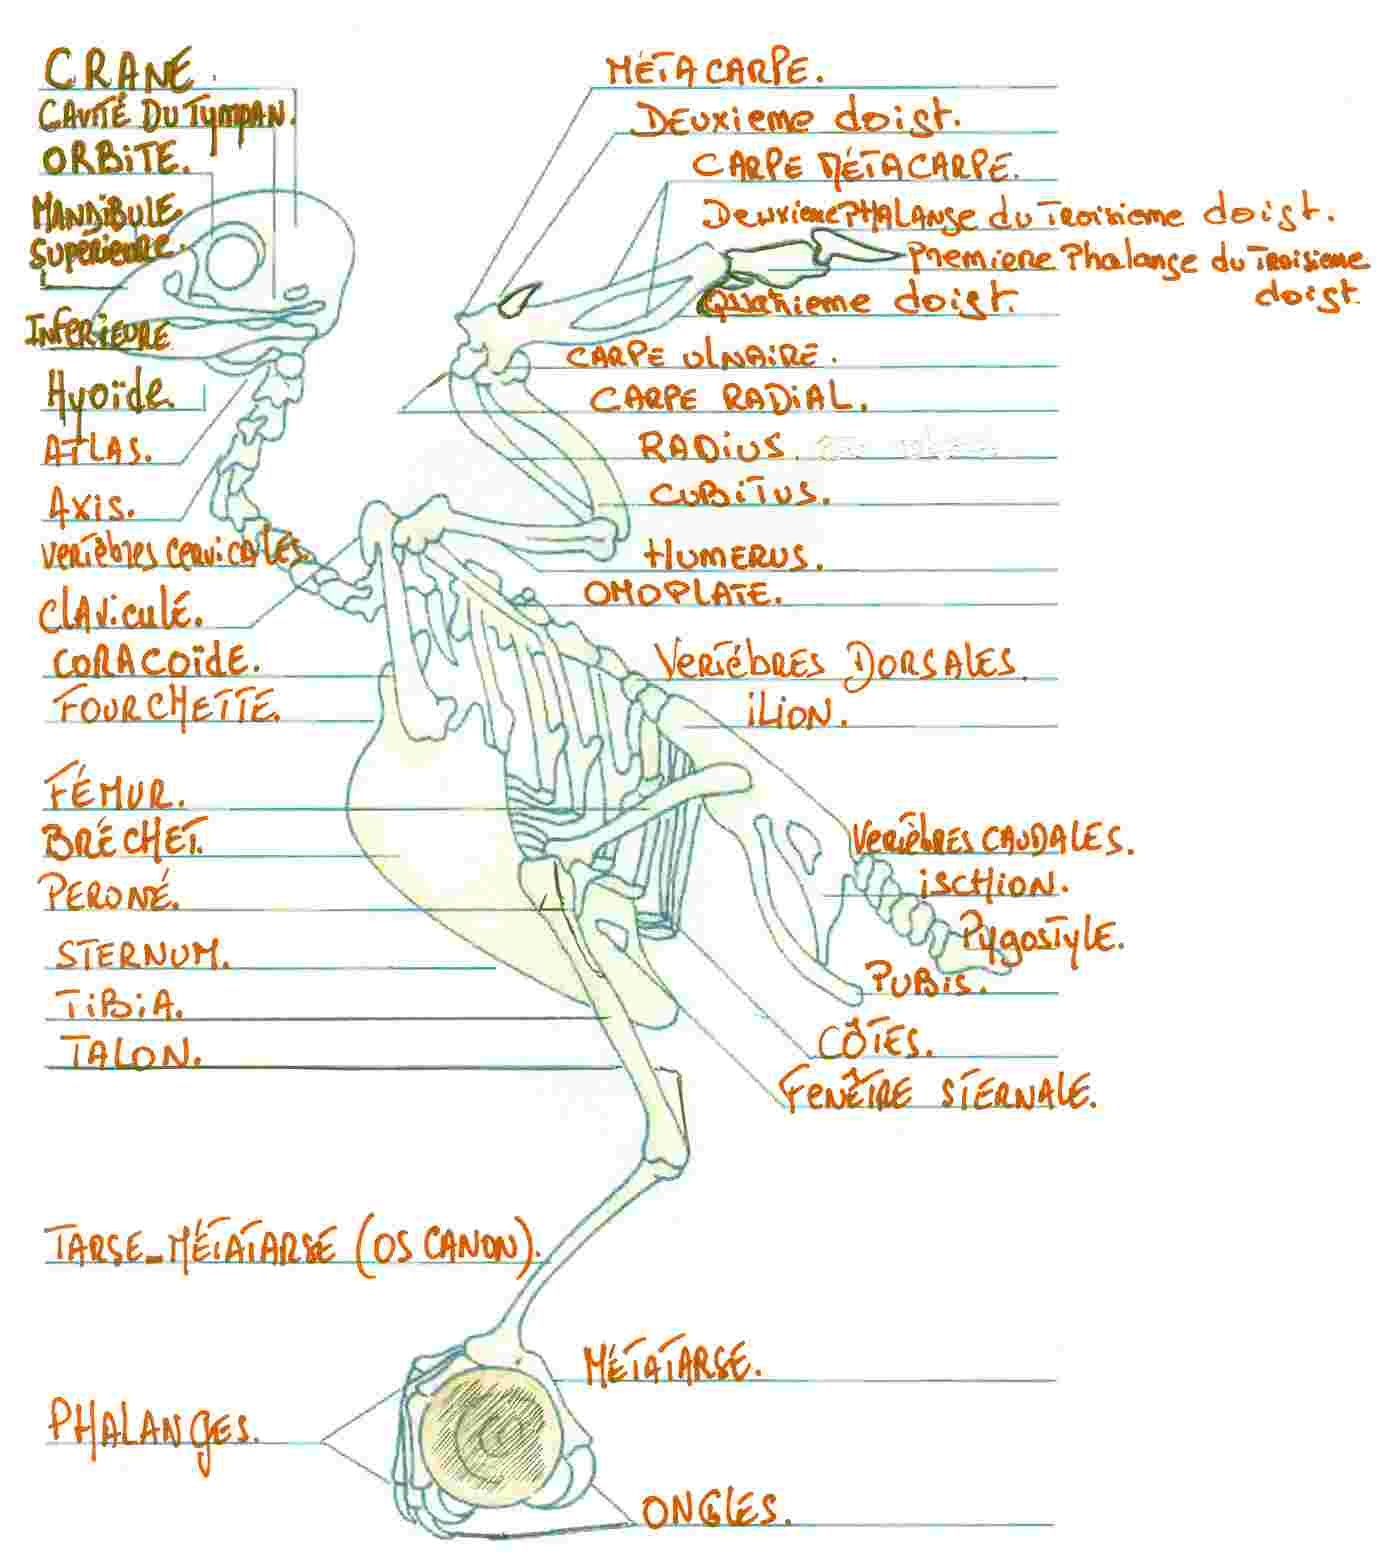 CRANE.
CAVITÉ DU TYMPAN.
ORBITE.
MANDIBULE
SUPÉRIEURE.
INFERIEURE
HYOÏDE.
ATLAS.
AXIS.
VERTÈBRES CERVICALES.
CLAVICULE.
CORACOÏDE.
FOURCHETTE.
FÉMUR.
BRÉCHET.
PERONÉ.
STERNUM.
TIBIA.
TALON.
TARSE_MÉTATARSE (OS CANON).
PHALANGES.
MÉTACARPE.
DEUXIEME doigt.
CARPE MÉTACARPE.
Deuxieme PHALANGE du Troisieme doigt.
PREMIERE Phalange du Troisieme
doigt
Quatrieme doigt.
CARPE ULNAIRE.
CARPE RADIAL.
RADIUS.
CUBITUS.
HUMERUS.
OMOPLATE.
VERTÉBRES DORSALES.
ILION.
VERTÈBRES CAUDALES.
ISCHION.
PYGOSTYLE.
PUBIS.
CÔTES.
FENÊTRE STERNALE.
MÉTATARSE.
ONGLES.